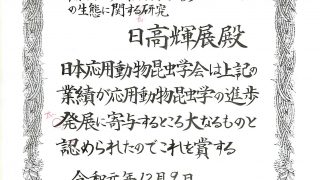 の生態に関する研究
日高輝展殿
日本応用動物昆虫学会は上記の
業績が応用動物昆虫学の進歩
発展に寄与するところ大なるものと
認められたのでこれを賞する
令和元年12月9日